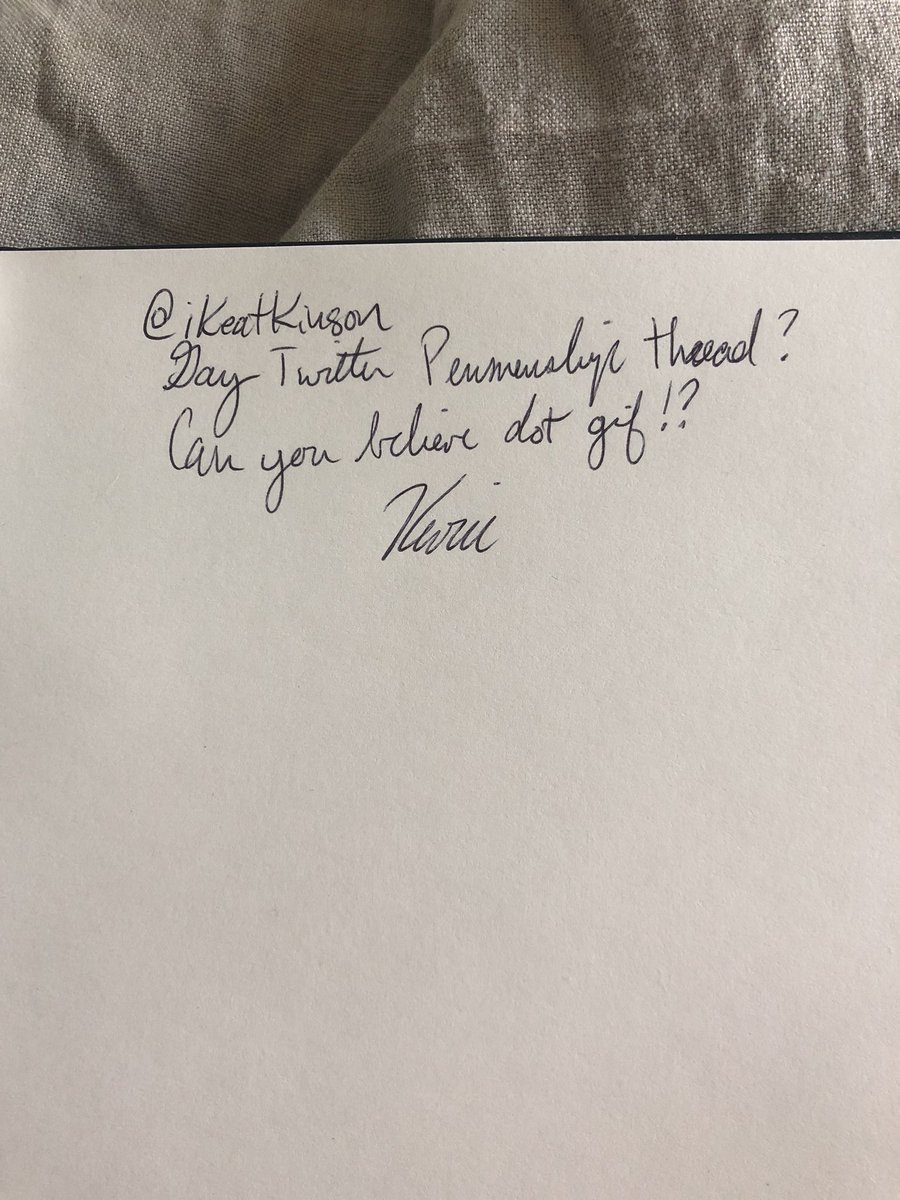 @ikeatkinson
Day Twitter Penmenship thread?
Can you believe dot gif!?